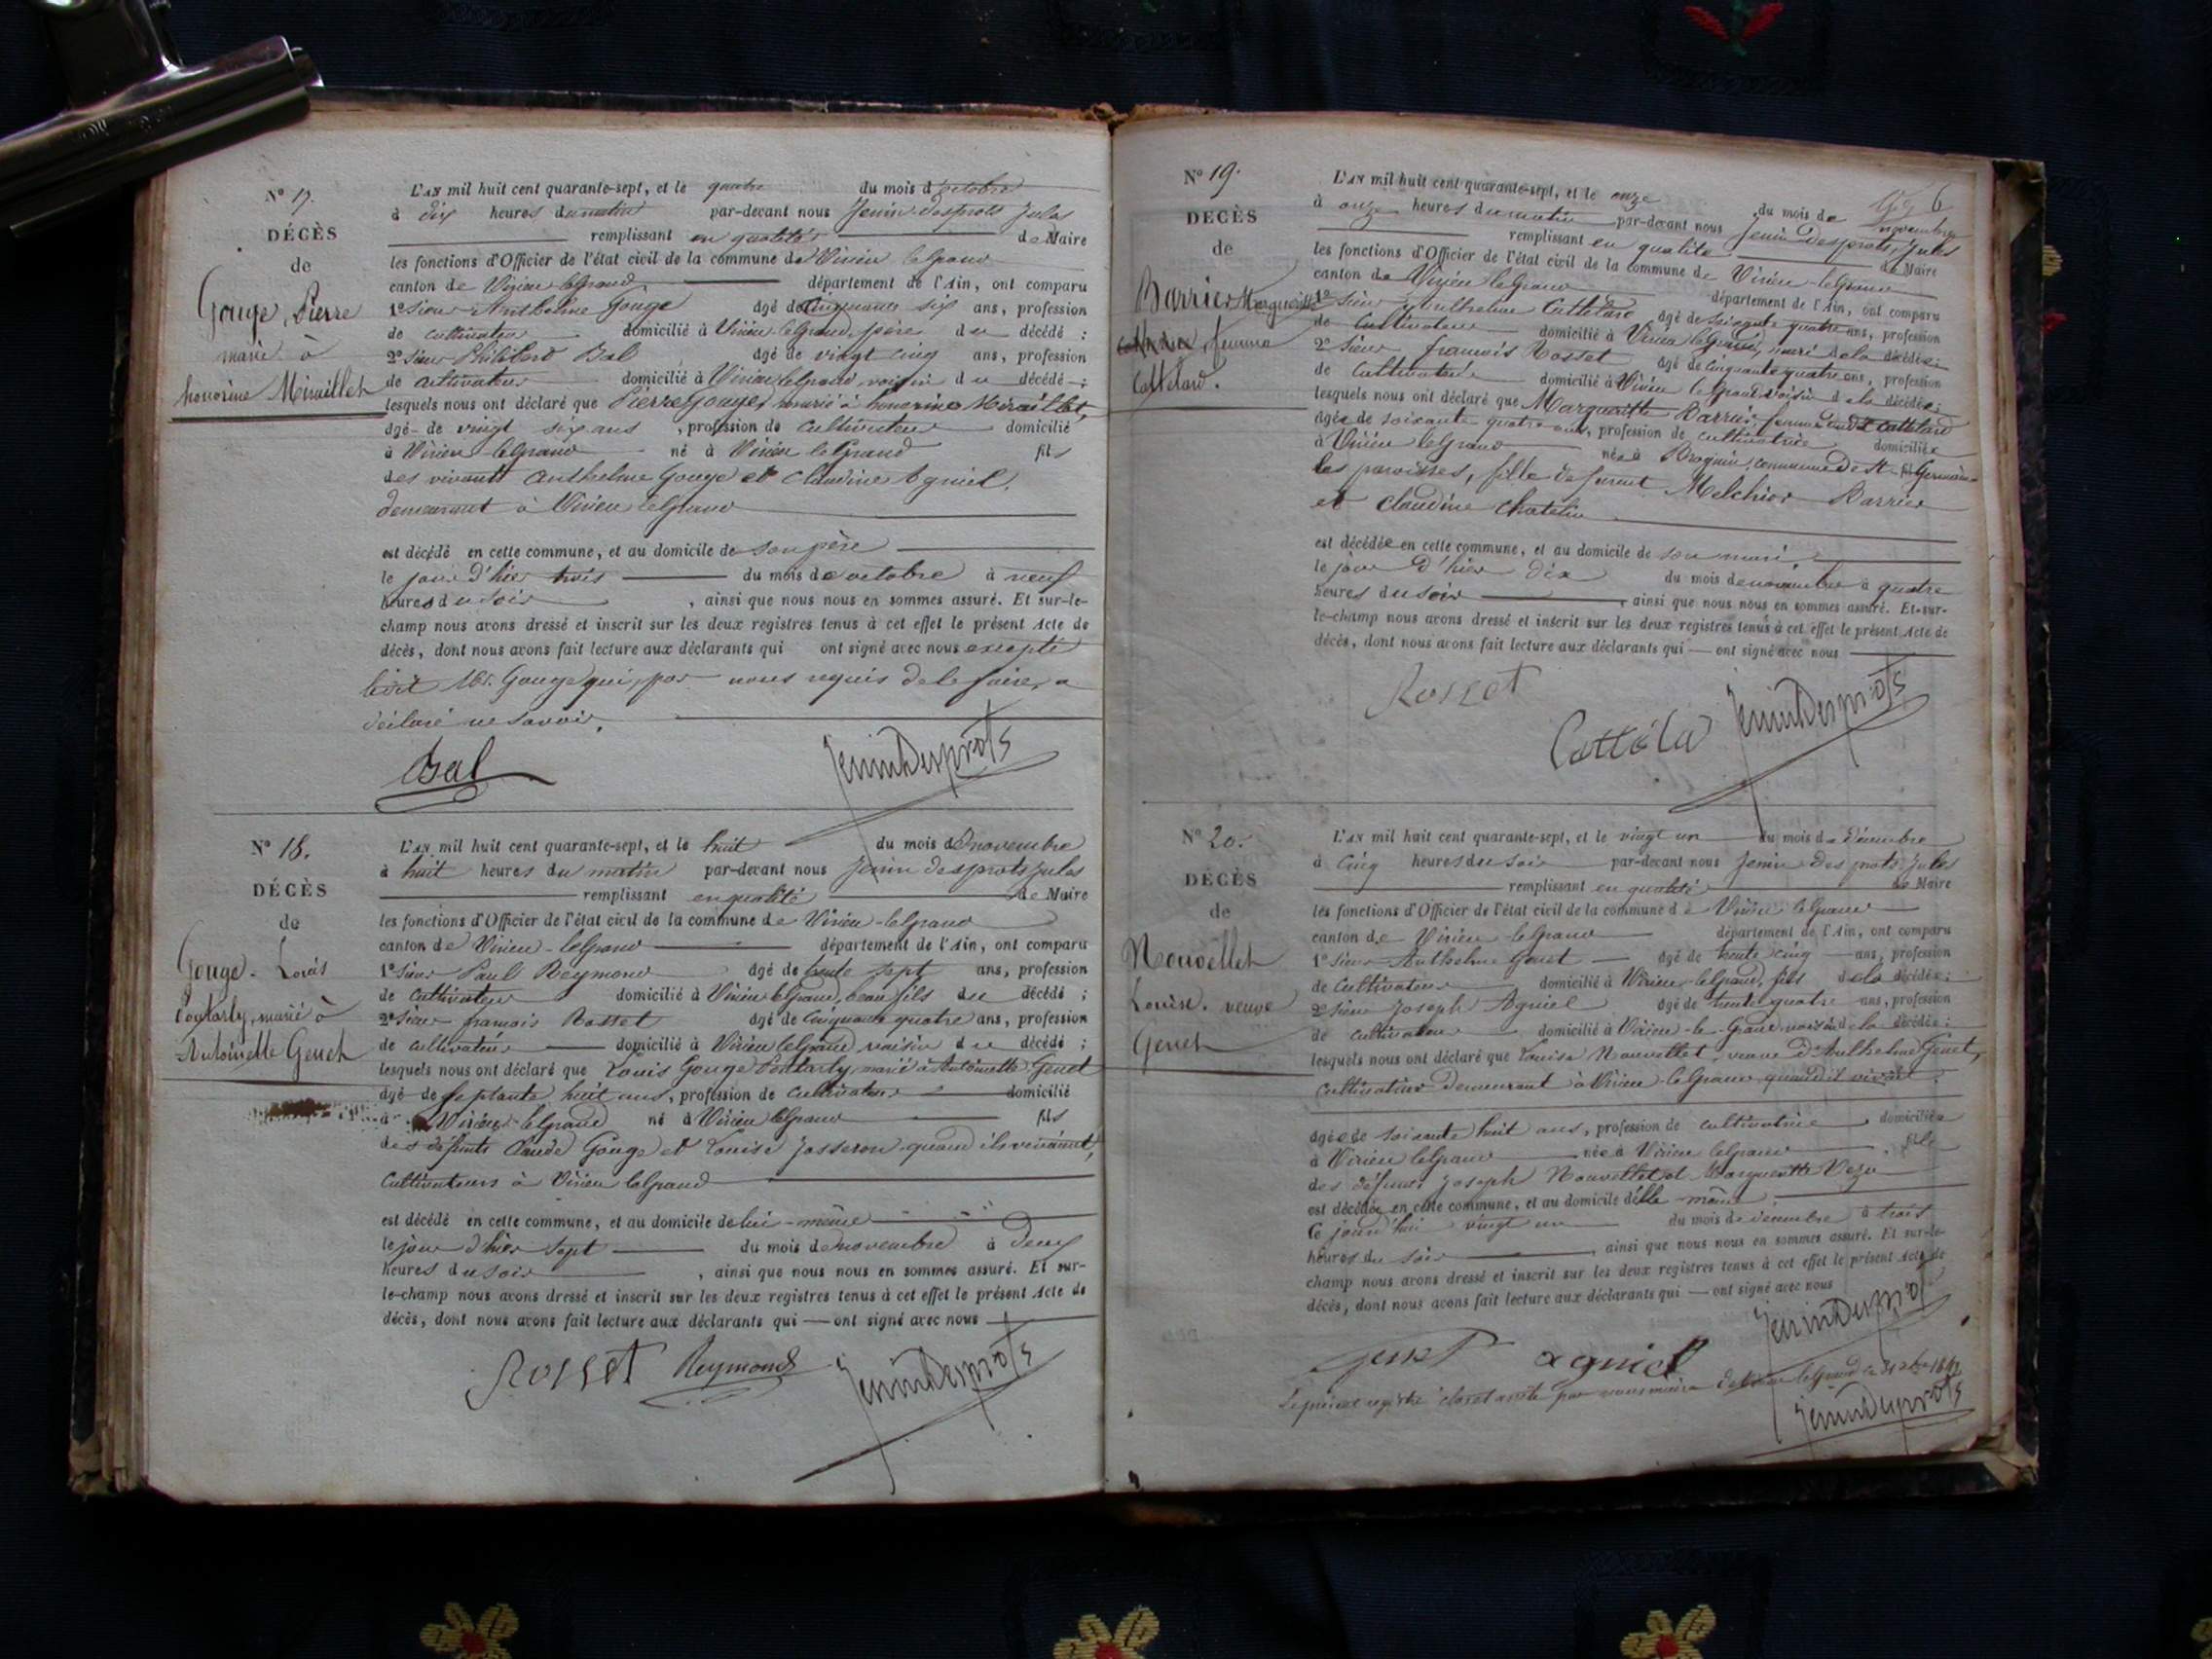 N° 17.
DÉCÈS
de
Gouge, Pierre
marié à
honorine Miraillet
L'AN mil huit cent quarante-sept, et le quatre du mois d'octobre
à dix heures du matin par-devant nous Jenin desprots Jules
remplissant en qualité de Maire
les fonctions d'Officier de l'état civil de la commune de Virieu le grand
canton de Virieu le grand, département de l'Ain, ont comparu
1° sieur Anthelme Gouge âgé de cinquante six ans, profession
de cultivateur domicilié à Virieu le grand, père du décédé ;
2° sieur Philibert Bal âgé de vingt cinq ans, profession
de cultivateur domicilié à Virieu le grand, voisin du décédé ;
lesquels nous ont déclaré que Pierre Gouge, marié à honorine Miraillet,
âgé de vingt six ans, profession de cultivateur domicilié
à Virieu le grand né à Virieu le Grand fils
des vivants Anthelme Gouge et Claudine Agniel,
demeurant à Virieu le grand
est décédé en cette commune, et au domicile de son père
le jour d'hier trois du mois de octobre à neuf
heures du soir, ainsi que nous nous en sommes assuré. Et sur-le-
champ nous avons dressé et inscrit sur les deux registres tenus à cet effet le présent Acte de
décès, dont nous avons fait lecture aux déclarants qui ont signé avec nous excepté
ledit Gouge qui, par nous requis de le faire, a
déclaré ne savoir.
Bal JeninDesprots
N° 18.
DÉCÈS
de
Gouge Louis
Pontarly, marié à
Antoinette Genet
L'AN mil huit cent quarante-sept, et le huit du mois de novembre
à huit heures du matin par-devant nous Jenin desprots Jules
remplissant en qualité de Maire
les fonctions d'Officier de l'état civil de la commune de Virieu-le grand
canton de Virieu-le grand département de l'Ain, ont comparu
1° sieur Paul Reymond âgé de trente sept ans, profession
de cultivateur domicilié à Virieu le grand, beau fils du décédé ;
2° sieur françois Rosset âgé de cinquante quatre ans, profession
de cultivateur domicilié à Virieu le grand voisin du décédé ;
lesquels nous ont déclaré que Louis Gouge Pontarly, marié à Antoinette Genet
âgé de septante huit ans, profession de cultivateur domicilié
à Virieu le grand né à Virieu le grand fils
des défunts Claude Gouge et Louise Josseron quand ils vivaient,
cultivateurs à Virieu le grand
est décédé en cette commune, et au domicile de lui-même
le jour d'hier sept du mois de novembre à deux
heures du soir, ainsi que nous nous en sommes assuré. Et sur-
le-champ nous avons dressé et inscrit sur les deux registres tenus à cet effet le présent Acte de
décès, dont nous avons fait lecture aux déclarants qui ont signé avec nous
Rosset Reymond JeninDesprots
6
N° 19.
DÉCÈS
de
Barrier Marguerite
femme
Cattelard.
L'AN mil huit cent quarante-sept, et le onze du mois de novembre
à onze heures du matin par-devant nous Jenin Desprots, Jules
remplissant en qualité de Maire
les fonctions d'Officier de l'état civil de la commune de Virieu-le grand
canton de Virieu le grand département de l'Ain, ont comparu
1° sieur Anthelme Cattelard âgé de soixante quatre ans, profession
de cultivateur domicilié à Virieu le grand, mari de la décédée ;
2° sieur françois Rosset âgé de cinquante quatre ans, profession
de cultivateur domicilié à Virieu le grand voisin de la décédée ;
lesquels nous ont déclaré que Marguerite Barrier, femme dudit Cattelard
âgée de soixante quatre ans, profession de cultivatrice domiciliée
à Virieu le grand née à Brognin, commune de St Germain
les paroisses, fille de furent Melchior Barrier
et Claudine Chatelin
est décédée en cette commune, et au domicile de son mari
le jour d'hier dix du mois de novembre à quatre
heures du soir, ainsi que nous nous en sommes assuré. Et sur-
le-champ nous avons dressé et inscrit sur les deux registres tenus à cet effet le présent Acte de
décès, dont nous avons fait lecture aux déclarants qui ont signé avec nous
Rosset Cattéla JeninDesprots
N° 20.
DÉCÈS
de
Nouvellet
Louise. veuve
Genet
L'AN mil huit cent quarante-sept, et le vingt un du mois de décembre
à cinq heures du soir par-devant nous Jenin desprots Jules
remplissant en qualité de Maire
les fonctions d'Officier de l'état civil de la commune de Virieu le grand
canton de Virieu le grand département de l'Ain, ont comparu
1° sieur Anthelme Genet âgé de trente cinq ans, profession
de cultivateur domicilié à Virieu-le grand, fils de la décédée ;
2° sieur Joseph Agniel âgé de trente quatre ans, profession
de cultivateur domicilié à Virieu-le-Grand voisin de la décédée ;
lesquels nous ont déclaré que Louise Nouvellet, veuve d'Anthelme Genet,
cultivateur demeurant à Virieu-le grand quand il vivait,
âgée de soixante huit ans, profession de cultivatrice domiciliée
à Virieu le grand née à Virieu le grand fille
des défunts Joseph Nouvellet et Marguerite
est décédée en cette commune, et au domicile d'elle-même
ce jourd'hui vingt un du mois de décembre à trois
heures du soir, ainsi que nous nous en sommes assuré. Et sur-le-
champ nous avons dressé et inscrit sur les deux registres tenus à cet effet le présent Acte de
décès, dont nous avons fait lecture aux déclarants qui ont signé avec nous
Genet agniel JeninDesprots
Le présent registre clos et arrêté par nous maire de Virieu le grand le 31 xbre 1847
JeninDesprots